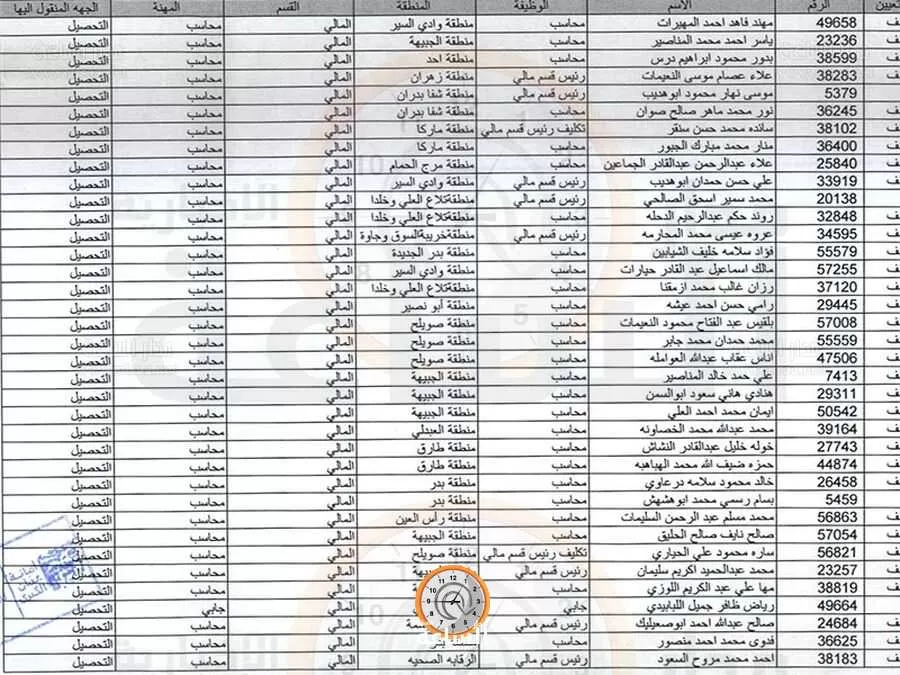 التعيين الرقم الاسم الوظيفة المنطقة القسم المهنة الجهه المنقول اليها
49658 مهند فاهد احمد المهيرات محاسب منطقة وادي السير المالي محاسب التحصيل
23236 ياسر احمد محمد المناصير محاسب منطقة الجبيهة المالي محاسب التحصيل
38599 بدور محمود ابراهيم درس محاسب منطقة احد المالي محاسب التحصيل
38283 علاء عصام موسى النعيمات رئيس قسم مالي منطقة زهران المالي محاسب التحصيل
5379 موسى نهار محمود ابوهديب رئيس قسم مالي منطقة شفا بدران المالي محاسب التحصيل
36245 نور محمد ماهر صالح صوان محاسب منطقة شفا بدران المالي محاسب التحصيل
38102 سانده محمد حسن سنقر تكليف رئيس قسم مالي منطقة ماركا المالي محاسب التحصيل
36400 منار محمد مبارك الجبور محاسب منطقة ماركا المالي محاسب التحصيل
25840 علاء عبدالرحمن عبدالقادر الجماعين محاسب منطقة مرج الحمام المالي محاسب التحصيل
33919 علي حسن حمدان ابوهديب رئيس قسم مالي منطقة وادي السير المالي محاسب التحصيل
20138 محمد سمير اسحق الصالحي رئيس قسم مالي منطقةتلاع العلي وخلدا المالي محاسب التحصيل
32848 روند حكم عبدالرحيم الدحله محاسب منطقةتلاع العلي وخلدا المالي محاسب التحصيل
34595 عروه عيسى محمد المحارمه رئيس قسم مالي منطقةخريبةالسوق وجاوة المالي محاسب التحصيل
55579 فؤاد سلامه خليف الشيابين محاسب منطقة بدر الجديدة المالي محاسب التحصيل
57255 مالك اسماعيل عبد القادر حيارات محاسب منطقة وادي السير المالي محاسب التحصيل
37120 رزان غالب محمد ازمقنا محاسب منطقةتلاع العلي وخلدا المالي محاسب التحصيل
29445 رامي حسن احمد عيشه محاسب منطقة أبو نصير المالي محاسب التحصيل
57008 بلقيس عبد الفتاح محمود النعيمات محاسب منطقة صويلح المالي محاسب التحصيل
55559 محمد حمدان محمد جابر محاسب منطقة صويلح المالي محاسب التحصيل
47506 اناس عقاب عبدالله العوامله محاسب منطقة صويلح المالي محاسب التحصيل
7413 علي حمد خالد المناصير محاسب منطقة الجبيهة المالي محاسب التحصيل
29311 هنادي هاني سعود ابوالسمن محاسب منطقة الجبيهة المالي محاسب التحصيل
50542 ايمان محمد احمد العلي محاسب منطقة الجبيهة المالي محاسب التحصيل
39164 محمد عبدالله محمد الخصاونه محاسب منطقة العبدلي المالي محاسب التحصيل
27743 خوله خليل عبدالقادر النشاش محاسب منطقة طارق المالي محاسب التحصيل
44874 حمزه ضيف الله محمد الهباهبه محاسب منطقة طارق المالي محاسب التحصيل
26458 خالد محمود سلامه درعاوي محاسب منطقة بدر المالي محاسب التحصيل
5459 بسام رسمي محمد ابوهشهش محاسب منطقة بدر المالي محاسب التحصيل
56863 محمد مسلم عبد الرحمن السليمات محاسب منطقة رأس العين المالي محاسب التحصيل
57054 صالح نايف صالح الحليق محاسب منطقة الجبيهة المالي محاسب التحصيل
56821 ساره محمود علي الحياري تكليف رئيس قسم مالي منطقة صويلح المالي محاسب التحصيل
23257 محمد عبدالحميد اكريم سليمان رئيس قسم مالي المالي محاسب التحصيل
38819 مها علي عبد الكريم اللوزي محاسب المالي محاسب التحصيل
49664 رياض ظافر جميل اللبابيدي جابي المالي جابي التحصيل
24684 صالح عبدالله احمد ابوصعيليك رئيس قسم مالي المالي محاسب التحصيل
36625 فدوى محمد احمد منصور محاسب المالي محاسب التحصيل
38183 احمد محمد مروح السعود رئيس قسم مالي الرقابه الصحيه المالي محاسب التحصيل